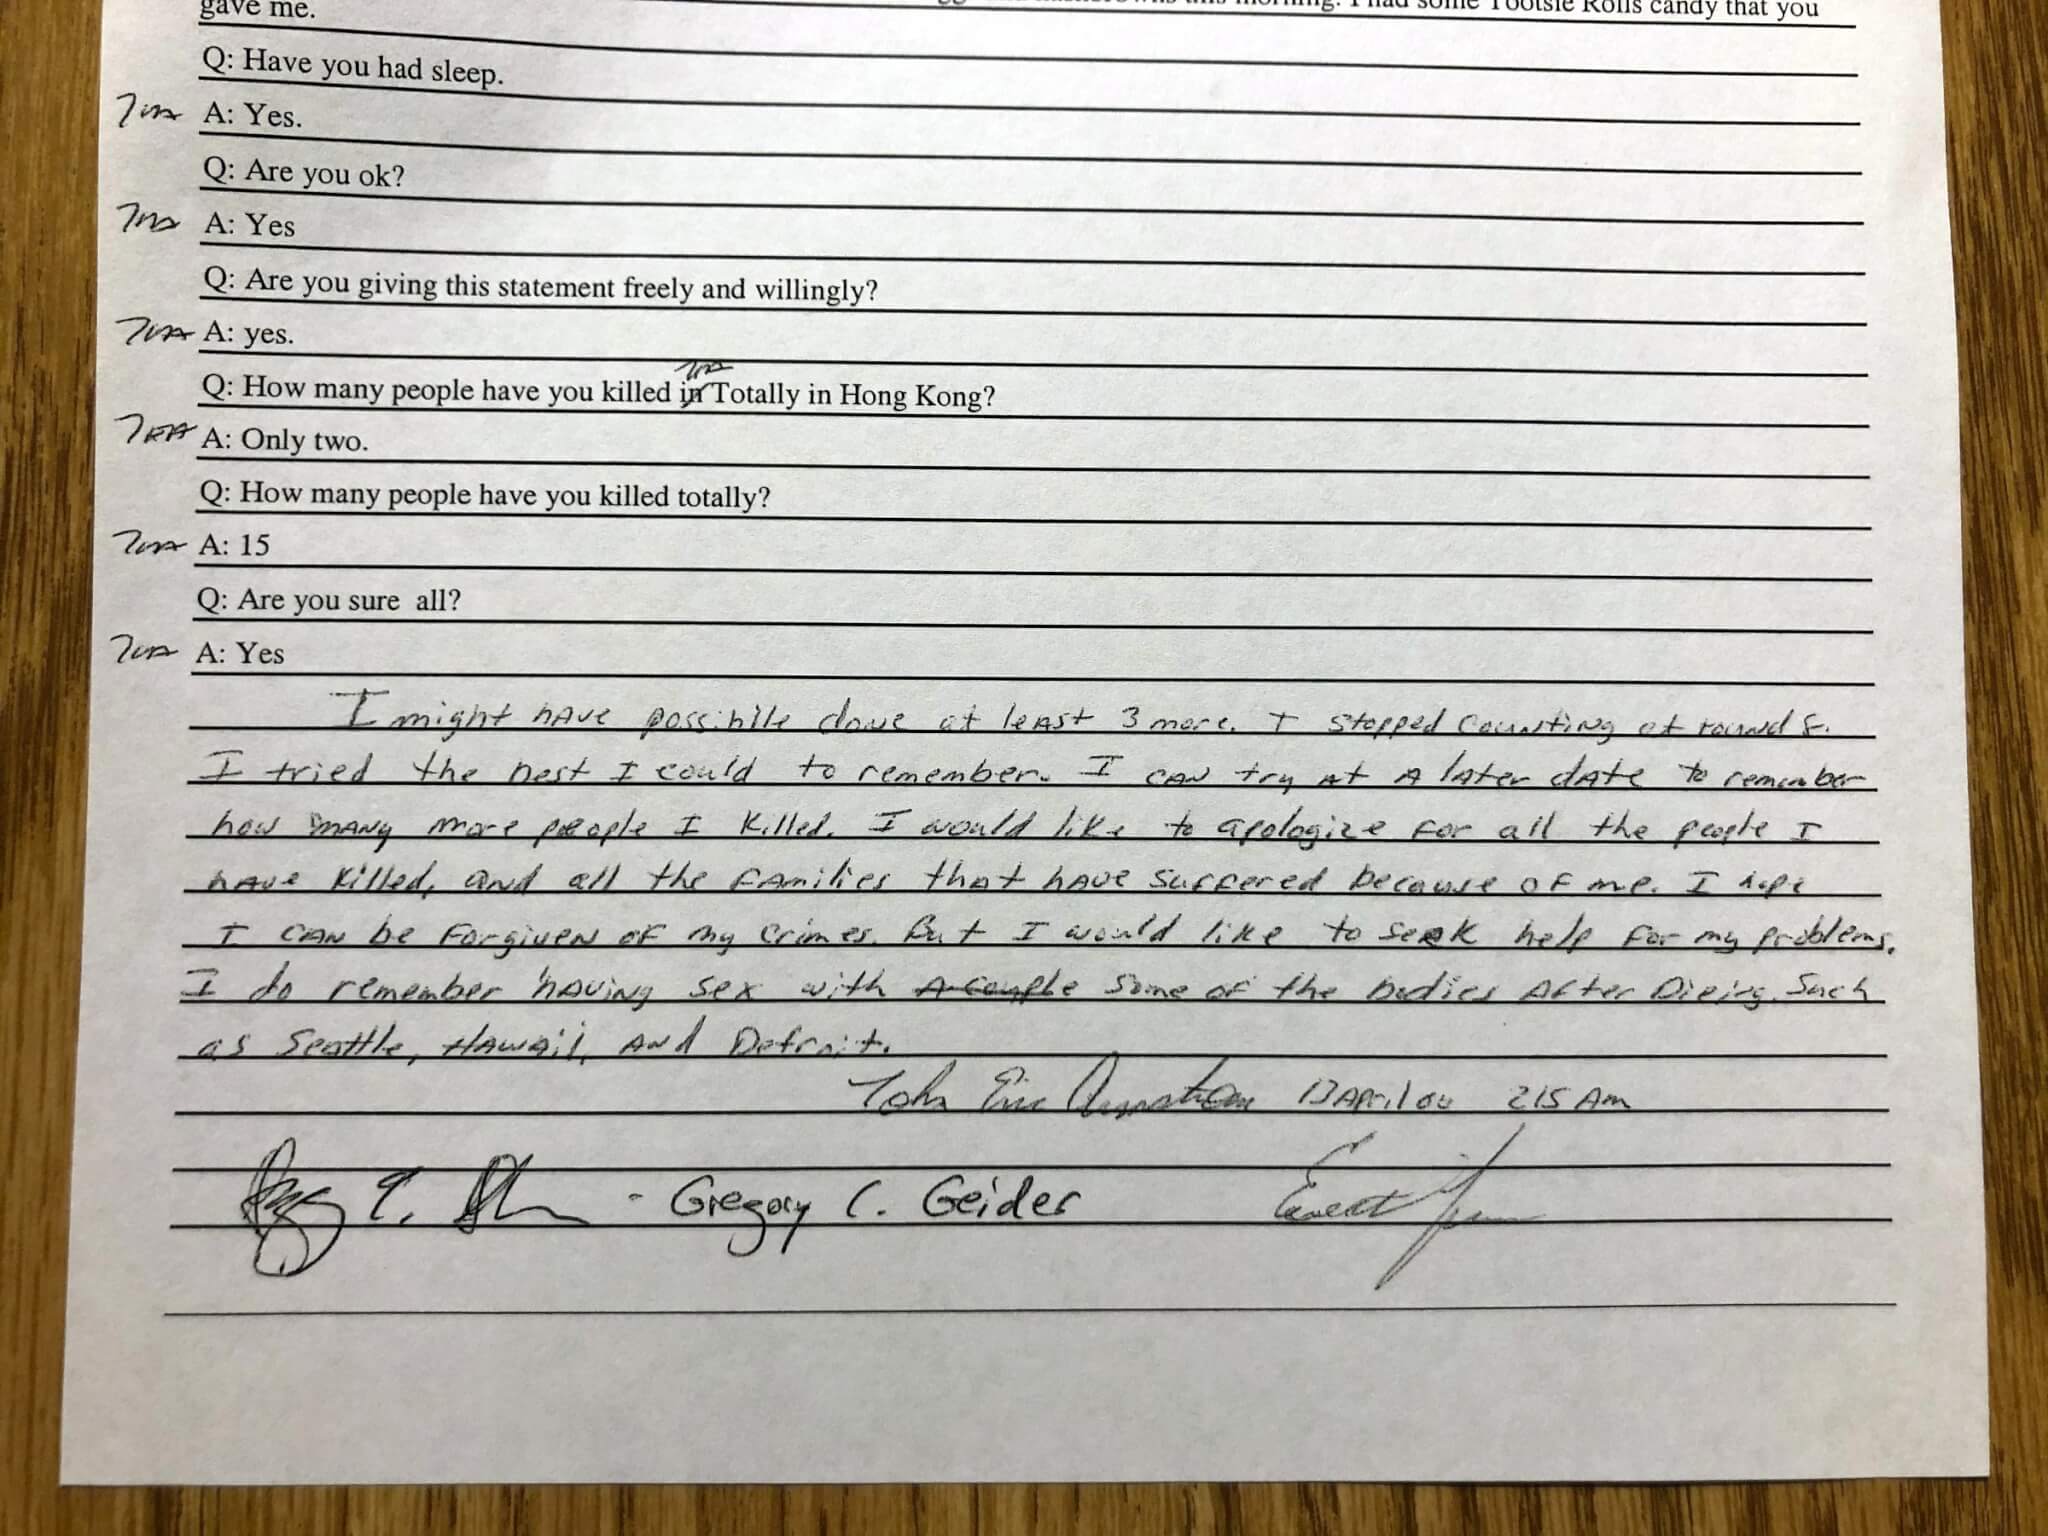 this morning. I had some Tootsie Rolls candy that you
gave me.
Q: Have you had sleep.
A: Yes.
Q: Are you ok?
A: Yes
Q: Are you giving this statement freely and willingly?
A: yes.
Q: How many people have you killed in Totally in Hong Kong?
A: Only two.
Q: How many people have you killed totally?
A: 15
Q: Are you sure all?
A: Yes
I might have possibile done at least 3 more. I stopped counting at round 8.
I tried the best I could to remember. I can try at a later date to remember
how many more people I killed. I would like to apologize for all the people I
have killed, and all the families that have suffered because of me. I hope
I can be forgiven of my crimes. But I would like to seek help for my problems.
I do remember having sex with a couple some of the bodies after Dieing. Such
as Seattle, Hawaii, and Detroit.
John Eric Armstrong 13 April 00 215 Am
Gregory C. Geider